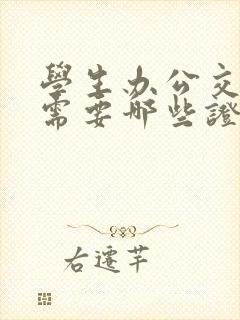 學生办公交
需要哪些證
右遷芊